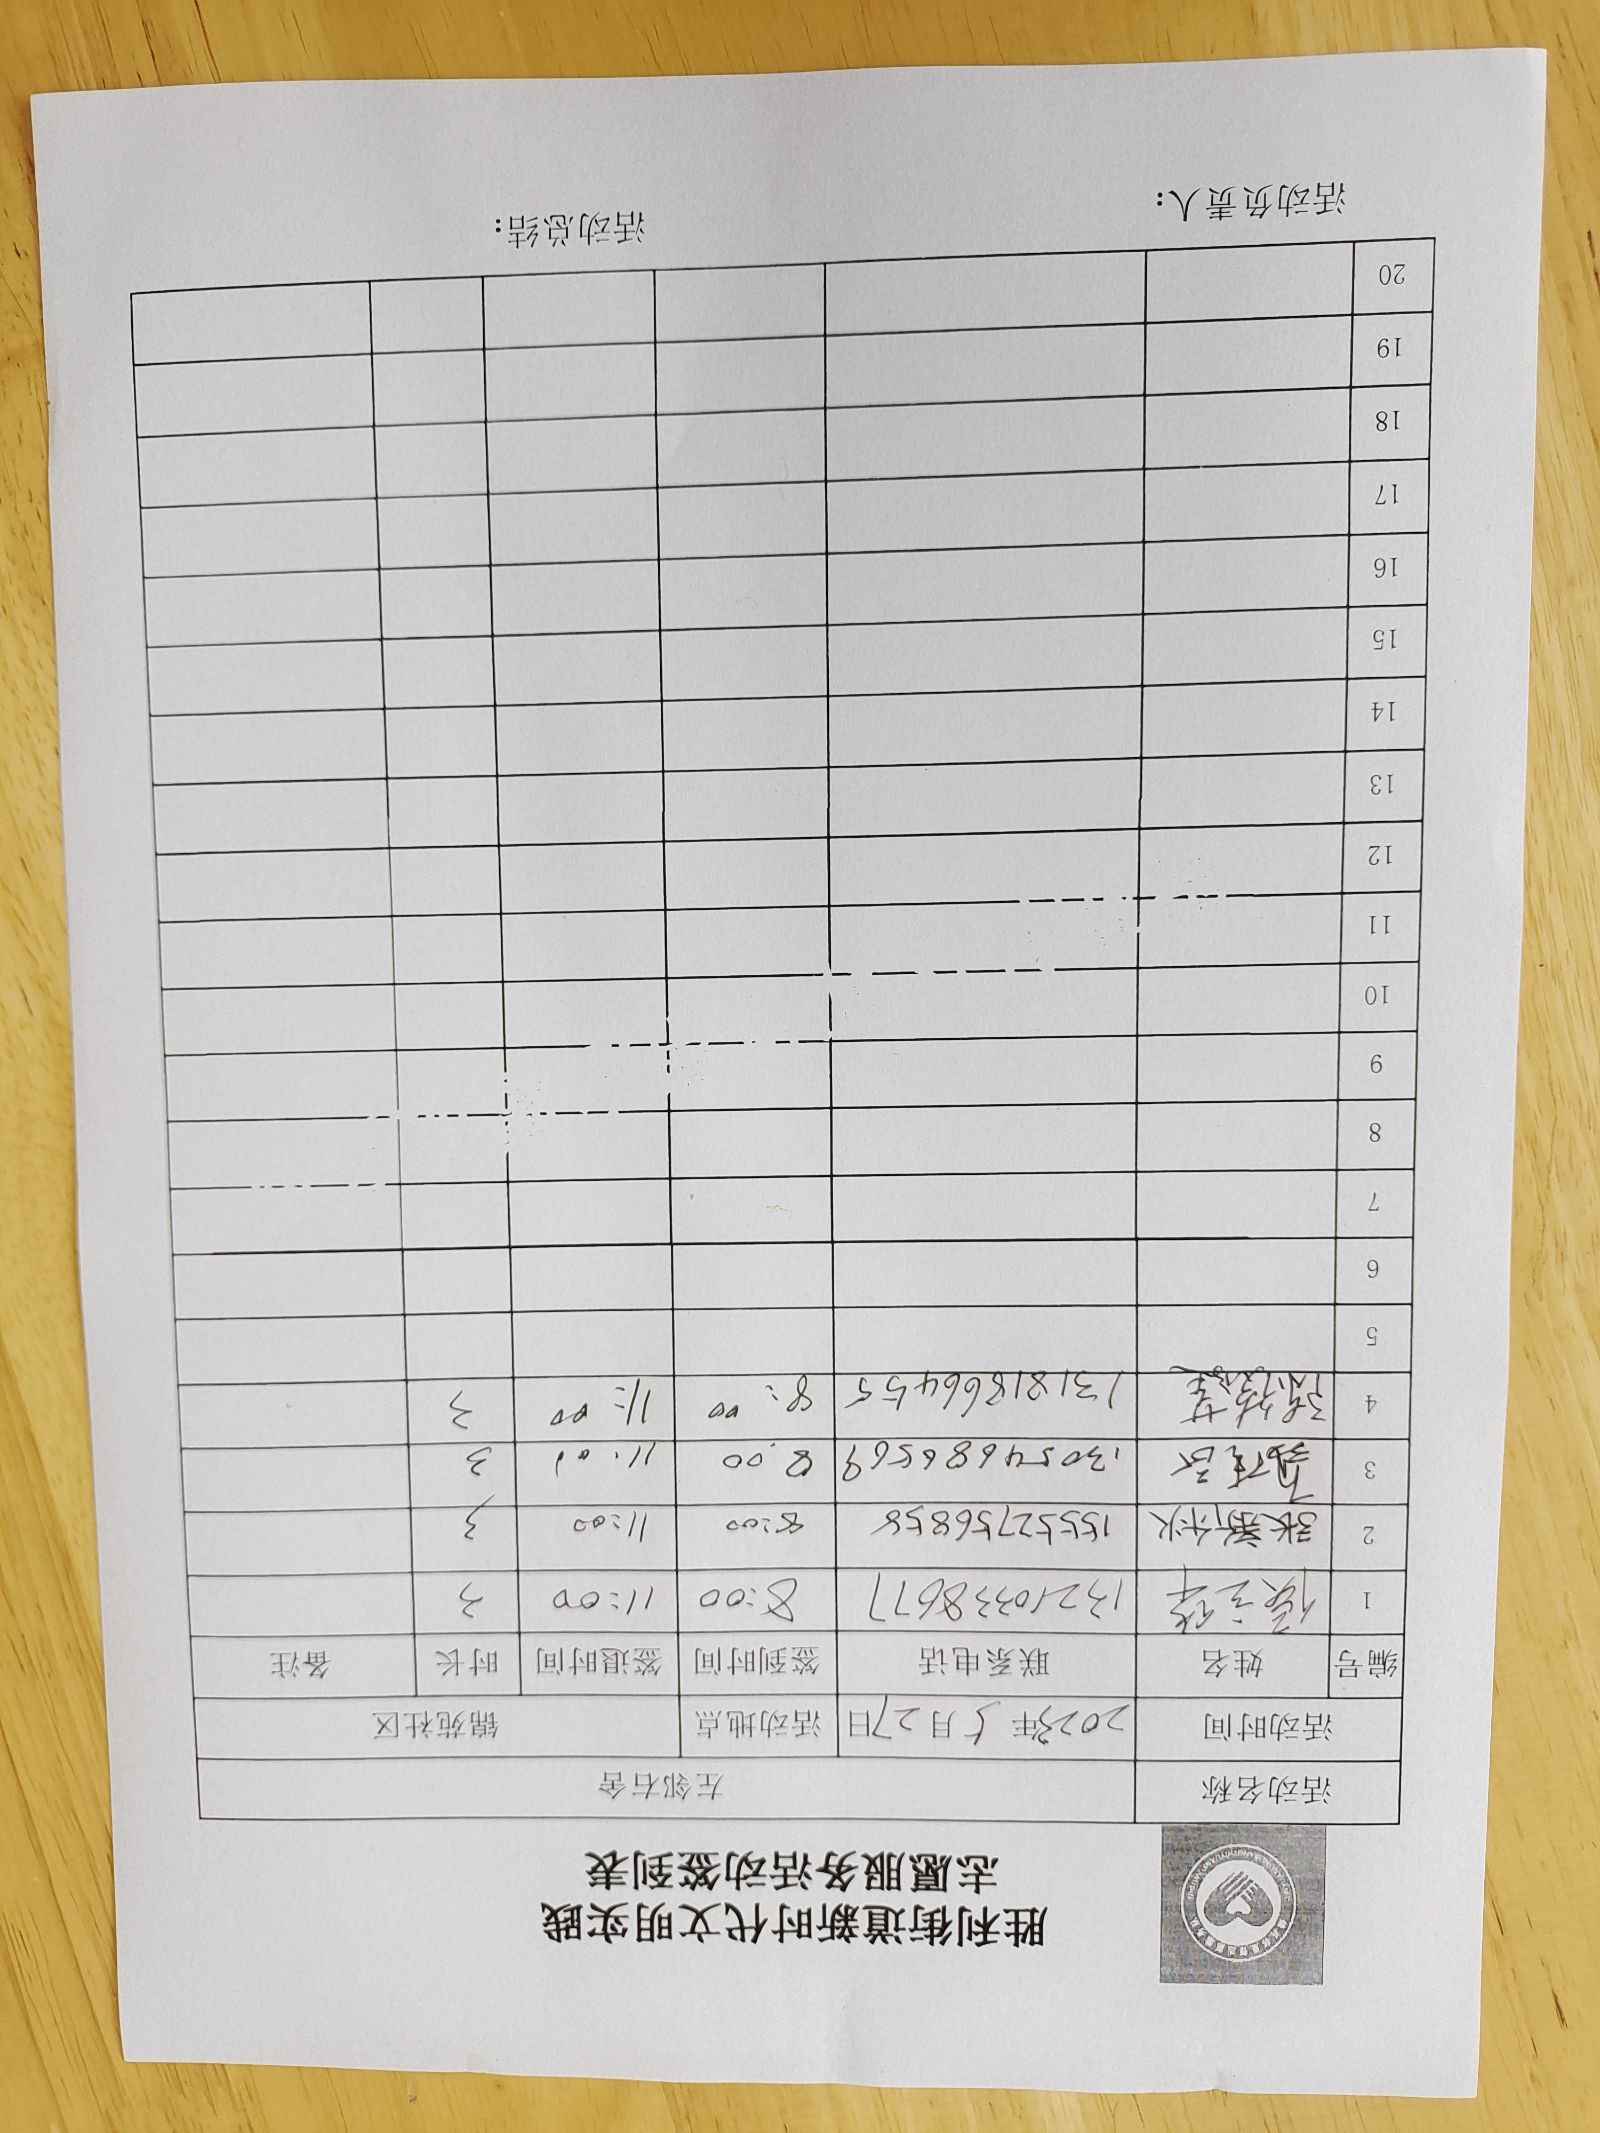 胜利街道新时代文明实践
志愿服务活动签到表
活动名称 左邻右舍
活动时间 2023年5月27日 活动地点 锦苑社区
编号 姓名 联系电话 签到时间 签退时间 时长 备注
1 13210338677 8:00 11:00 3
2 张新秋 15552756858 8:00 11:00 3
3 13054686569 8:00 11:00 3
4 13181866455 8:00 11:00 3
5
6
7
8
9
10
11
12
13
14
15
16
17
18
19
20
活动负责人： 活动总结：